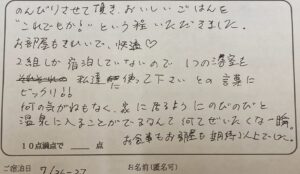 のんびりさせて頂き、おいしいごはんを
"これでもか!"という程いただきました。
お部屋もきれいで、快適♡
2組しか宿泊していないので1つの浴室を
私達で使って下さいとの言葉に
ビックリ!!
何の気がねもなく、家に居るようにのびのびと
温泉に入ることができるなんて何てぜいたくな一瞬。
お食事もお部屋も期待以上でした。
10点満点で 点
ご宿泊日 7/26-27 お名前(匿名可)